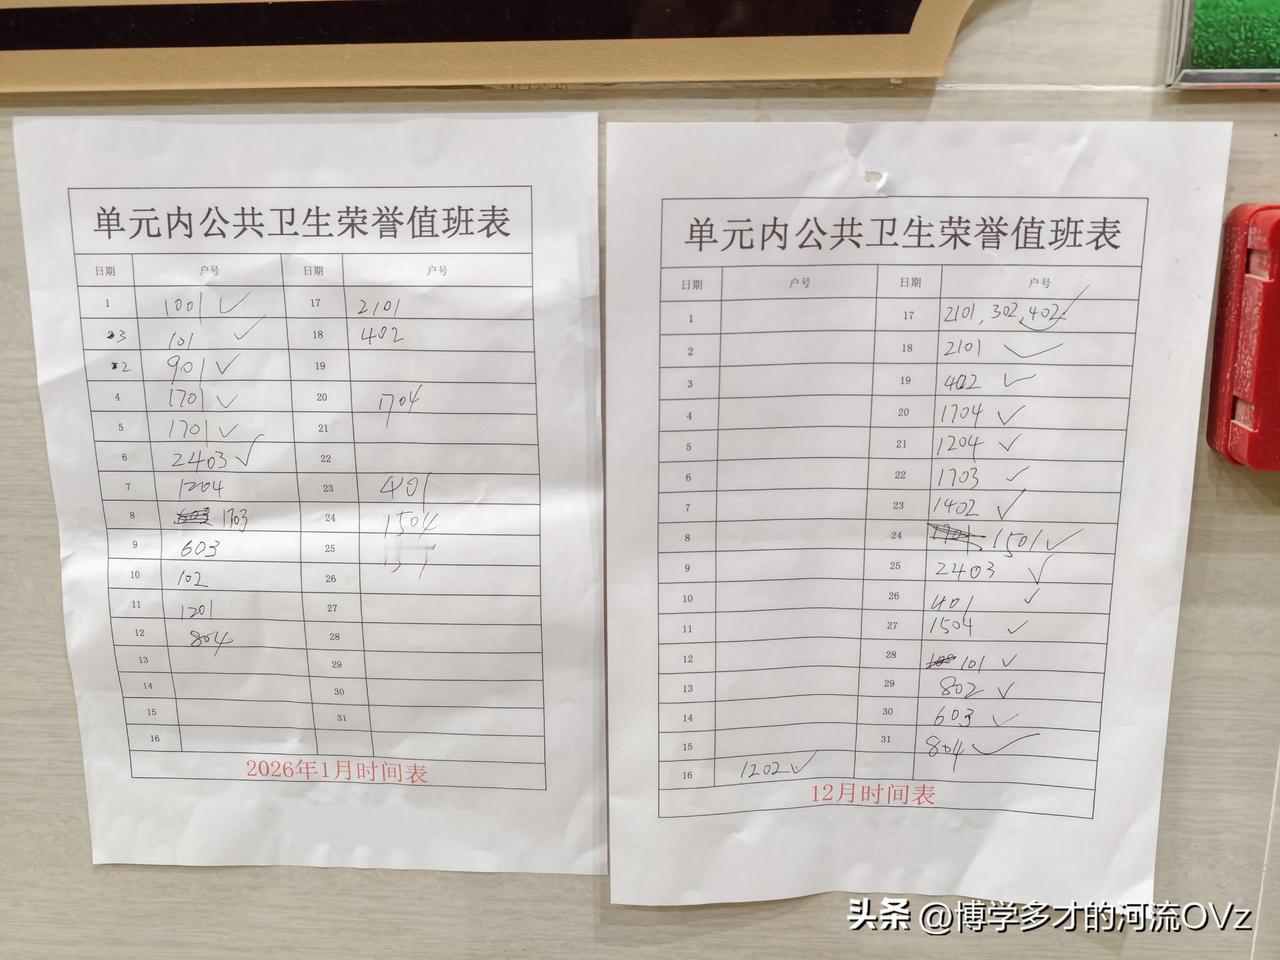 单元内公共卫生荣誉值班表
日期 户号 日期 户号
1 1001 ✓ 17 2101
3 101 ✓ 18 402
2 901 ✓ 19
4 1701 ✓ 20 1704
5 1701 ✓ 21
6 2403 ✓ 22
7 1204 23 401
8 1703 24 1504
9 603 25
10 102 26
11 1201 27
12 804 28
13 29
14 30
15 31
16
2026年1月时间表
单元内公共卫生荣誉值班表
日期 户号 日期 户号
1 17 2101, 302, 402 ✓
2 18 2101 ✓
3 19 402 ✓
4 20 1704 ✓
5 21 1204 ✓
6 22 1703 ✓
7 23 1402 ✓
8 24 1501 ✓
9 25 2403 ✓
10 26 401 ✓
11 27 1504 ✓
12 28 101 ✓
13 29 802 ✓
14 30 603 ✓
15 31 804 ✓
16 1202 ✓
12月时间表
头条 @博学多才的河流OVz